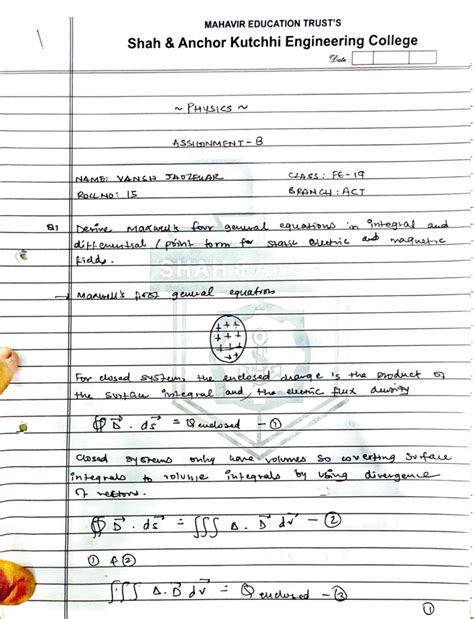 MAHAVIR EDUCATION TRUST'S
Shah & Anchor Kutchhi Engineering College
Date :
~ PHYSICS ~
ASSIGNMENT - B
NAME: VANSH
CLASS: FE-19
ROLL NO: 15
BRANCH: ACT
Q1 Derive Maxwell's four general equations in integral and
differential / point form for static electric and magnetic
fields.
→ Maxwell's first general equation
+ + +
+ + + +
+ + + +
+ + + +
- ++
For closed system, the enclosed charge is the product of
the surface integral and the electric flux density
∯ D⃗ . ds⃗ = Q enclosed - ①
Closed systems only have volumes so coverting surface
integrals to volume integrals by using divergence
of vectors.
∯ D⃗ . ds⃗ = ∫∫∫ Δ . D⃗ dv⃗ - ②
① & ②
∫∫∫ Δ . D⃗ dv⃗ = Q enclosed - ③
①
SHAH & ANCH